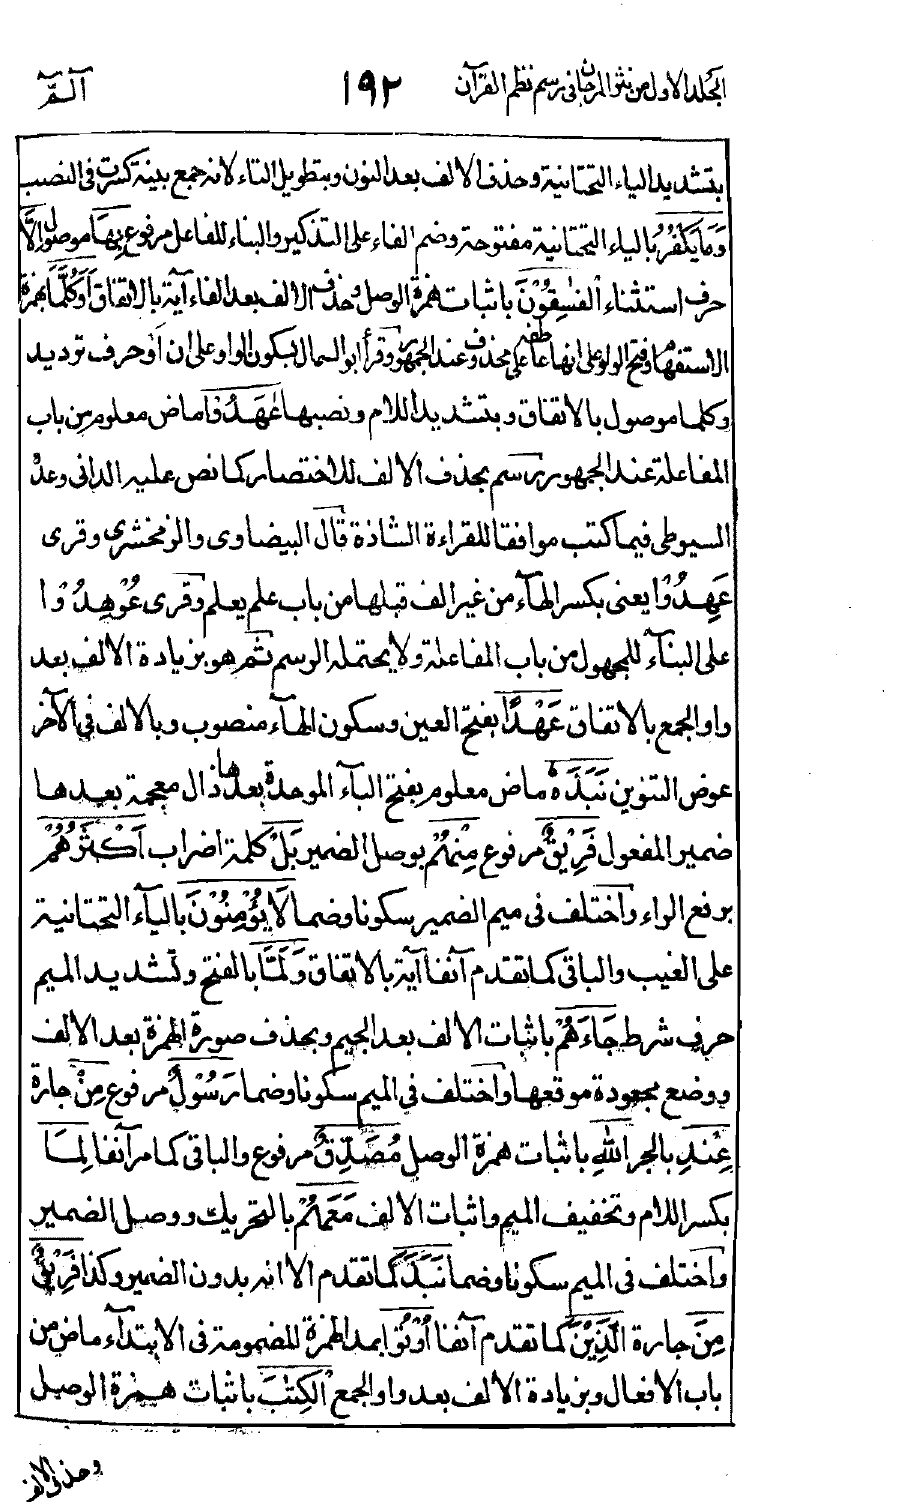 المجلد الاول من نثر المرجان فى رسم نظم القرآن
١٩٢
آلـمّٓ
بتشديد الياء التحتانية وحذف الالف بعد النون وبتطويل التاء لانه جمع بينة كسرت فى النصب
وَمَا يَكْفُرُ بالياء التحتانية مفتوحة وضم الفاء على التذكير والبناء للفاعل مرفوع بِهَا موصول اِلَّا
حرف استثناء الْفٰسِقُوْنَ باثبات همزة الوصل وحذف الالف بعد الفاء آية بالاتفاق اَوَكُلَّمَا بهمزة
الاستفهام وفتح الواو على انها عاطفة على محذوف عند الجمهور وقرأ ابو السمال بسكون الواو على ان اَوْ حرف ترديد
وكلما موصول بالاتفاق وبتشديد اللام ونصبها عٰهَدُوْا ماض معلوم من باب
المفاعلة عند الجمهور رسم بحذف الالف للاختصار كما نص عليه الدانى وعدّ
السيوطى فيما كتب موافقا للقراءة الشاذة قال البيضاوى والزمخشرى وقرى
عَهِدُوْا يعنى بكسر الهآء من غير الف قبلها من باب علم يعلم وقرى عُوْهِدُوْا
على البنآء للمجهول من باب المفاعلة ولا يحتمله الرسم ثم هو بزيادة الالف بعد
واو الجمع بالاتفاق عَهْدًا بفتح العين وسكون الهآء منصوب وبالالف فى الآخر
عوض التنوين نَبَذَهٗ ماض معلوم بفتح البآء الموحدة بعدها ذال معجمة بعدها
ضمير المفعول فَرِيْقٌ مرفوع مِنْهُمْ بوصل الضمير بَلْ كلمة اضراب اَكْثَرُهُمْ
برفع الراء واختلف فى ميم الضمير سكونا وضما لَا يُؤْمِنُوْنَ باليآء التحتانية
على الغيب والباقى كما تقدم آنفا آية بالاتفاق وَلَمَّا بالفتح وتشديد الميم
حرف شرط جَاءَهُمْ باثبات الالف بعد الجيم وبحذف صورة الهمزة بعد الالف
ووضع مجعودة موقعها واختلف فى الميم سكونا وضما رَسُوْلٌ مرفوع مِنْ جارة
عِنْدِ بالجر اللّٰهِ باثبات همزة الوصل مُصَدِّقٌ مرفوع والباقى كما مر آنفا لِمَا
بكسر اللام وتخفيف الميم واثبات الالف مَعَهُمْ بالتحريك ووصل الضمير
واختلف فى الميم سكونا وضما نَبَذَ كما تقدم الا انه بدون الضمير وكذا فَرِيْقٌ
مِنَ جارة الَّذِيْنَ كما تقدم آنفا اُوْتُوا بمد الهمزة المضمومة فى الابتدآء ماض من
باب الافعال وبزيادة الالف بعد واو الجمع الْكِتٰبَ باثبات همزة الوصل
وحذف الالف